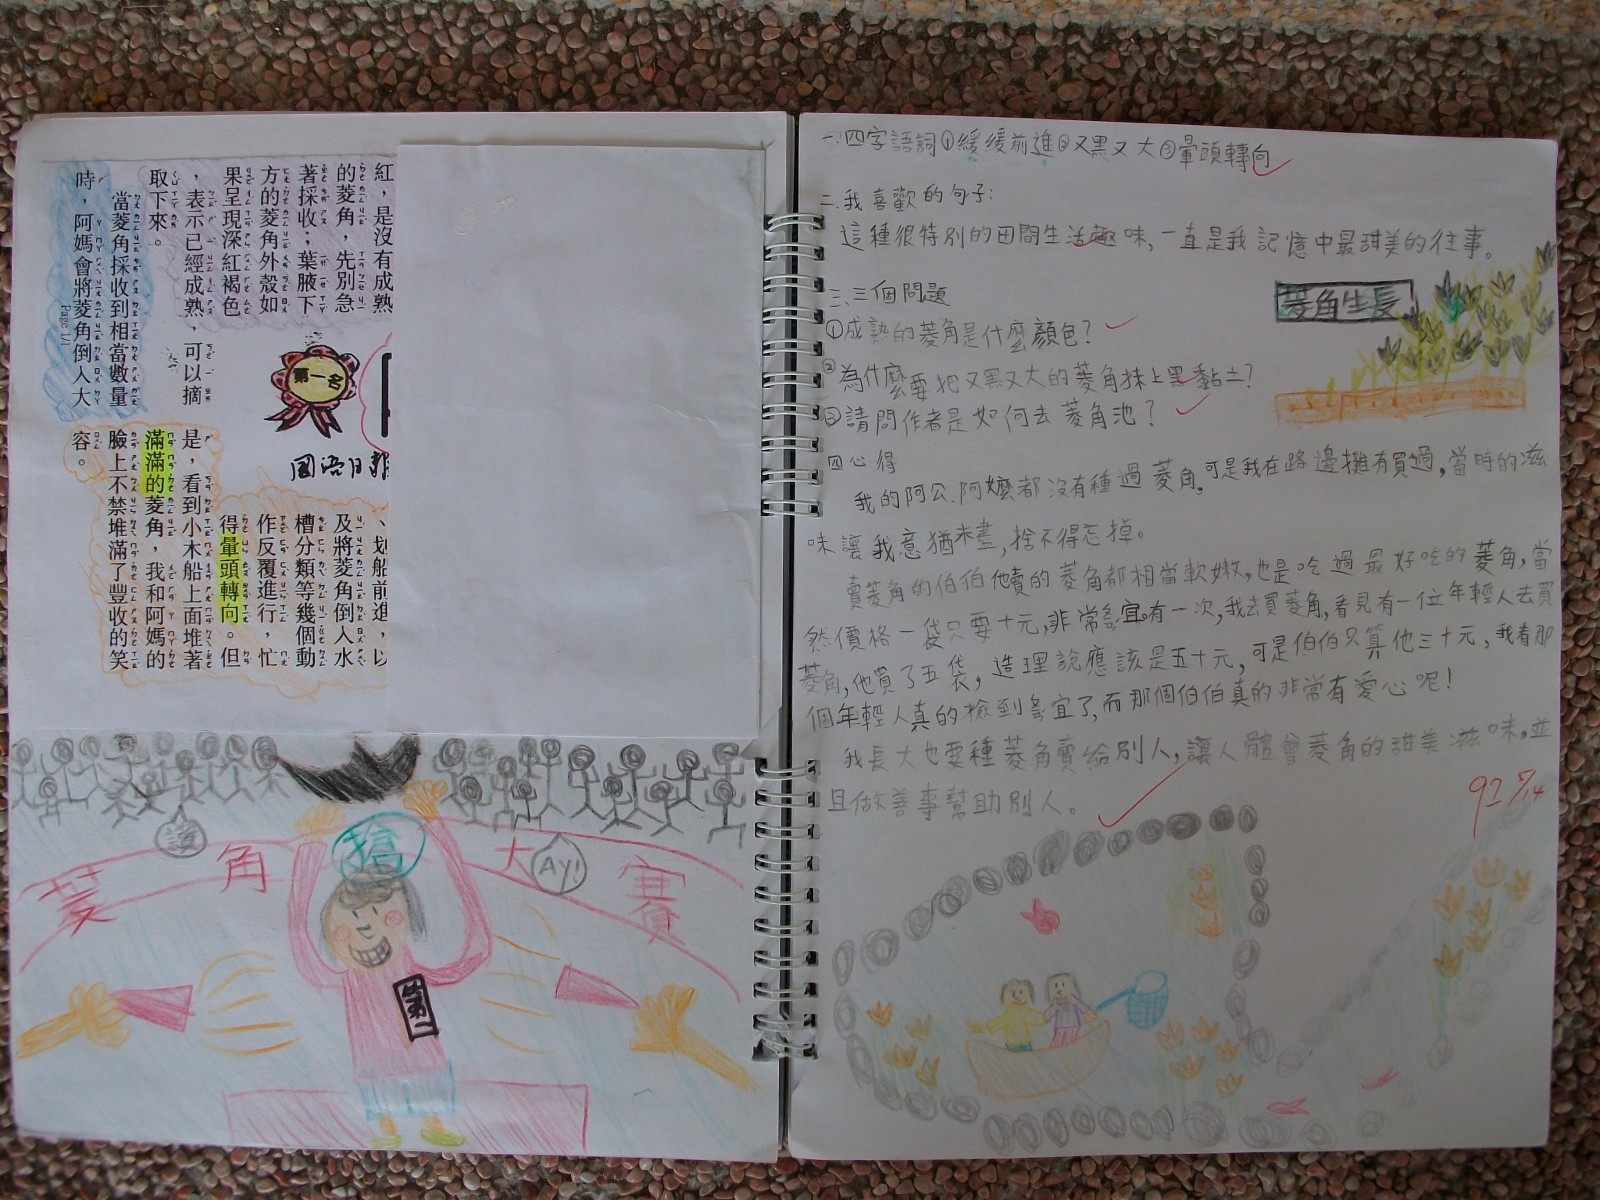 紅，是沒有成熟
的菱角，先別急
著採收；葉腋下
方的菱角外殼如
果呈現深紅褐色
，表示已經成熟，可以摘
取下來。
當菱角採收到相當數量
時，阿媽會將菱角倒入大
Page 1/1
第一名
國語日報
、划船前進，以
及將菱角倒入水
槽分類等幾個動
作反覆進行，忙
得暈頭轉向。但
是，看到小木船上面堆著
滿滿的菱角，我和阿媽的
臉上不禁堆滿了豐收的笑
容。
讚
搶
AY!
菱角大賽
第一
一.四字語詞①緩緩前進②又黑又大③暈頭轉向
二.我喜歡的句子:
這種很特別的田間生活趣味,一直是我記憶中最甜美的往事。
三、三個問題
①成熟的菱角是什麼顏色?
②為什麼要把又黑又大的菱角抹上黑黏土?
③請問作者是如何去菱角池?
菱角生長
四心得
我的阿公.阿嬤都沒有種過菱角,可是我在路邊攤有買過,當時的滋
味讓我意猶未盡,捨不得忘掉。
賣菱角的伯伯他賣的菱角都相當軟嫩,也是吃過最好吃的菱角,當
然價格一袋只要十元,非常便宜。有一次,我去買菱角,看見有一位年輕人去買
菱角,他買了五袋,造理說應該是五十元,可是伯伯只算他三十元,我看那
個年輕人真的撿到便宜了,而那個伯伯真的非常有愛心呢!
我長大也要種菱角賣給別人,讓人體會菱角的甜美滋味,並
且做善事幫助別人。
92 5/14